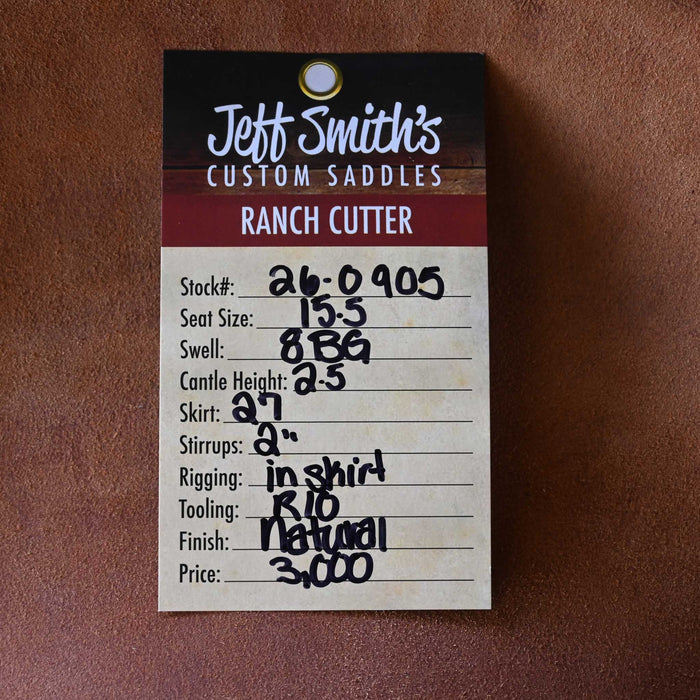 Jeff Smith's
CUSTOM SADDLES
RANCH CUTTER
Stock#: 26-0905
Seat Size: 15.5
Swell: 8 BG
Cantle Height: 2.5
Skirt: 27
Stirrups: 2"
Rigging: in skirt
Tooling: R10
Finish: Natural
Price: 3,000